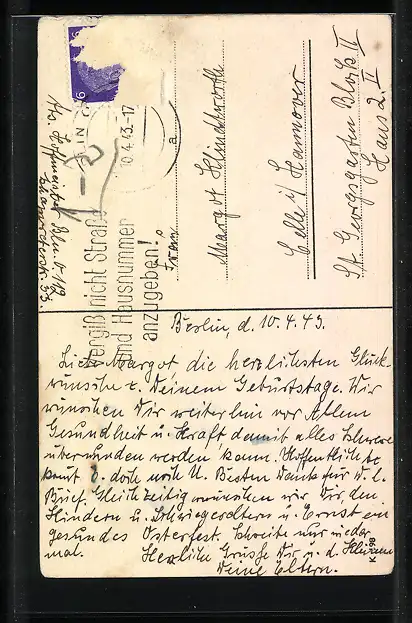 Berlin, d. 10.4.43.
Liebe Margot die herzlichsten Glück-
wünsche z. Deinem Geburtstage. Wir
wünschen Dir weiterhin vor Allem
Gesundheit u. Kraft damit alles Schwere
überwunden werden kann. Hoffentlich
kommt doch noch U. Besten Dank für D. l.
Brief. Gleichzeitig wünschen wir Dir, den
Kindern u. Schwiegereltern u. Ernst ein
gesundes Osterfest. Schreibe nur wieder
mal.
Herzliche Grüsse Dir u. d. Kleinen
Deine Eltern.
K 98
Frau
Margot Klindworth
Celle i/ Hannover
St Georgsgarten Block II
Haus 2. II
Abs. Hoffmeister Bln.
10.4.43.-17
a
6
Vergiß nicht Straße
und Hausnummer
anzugeben!